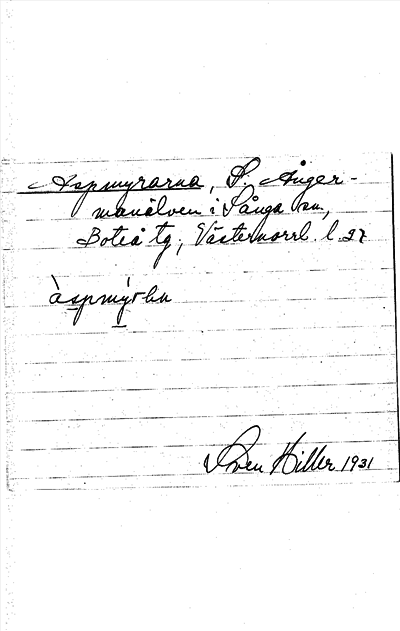 Aspmyrarna, S. Ånger-
manälven i Sånga sn,
Boteå tg, Västernorrl. l. 27
àspmýrhn
Sven Hiller 1931